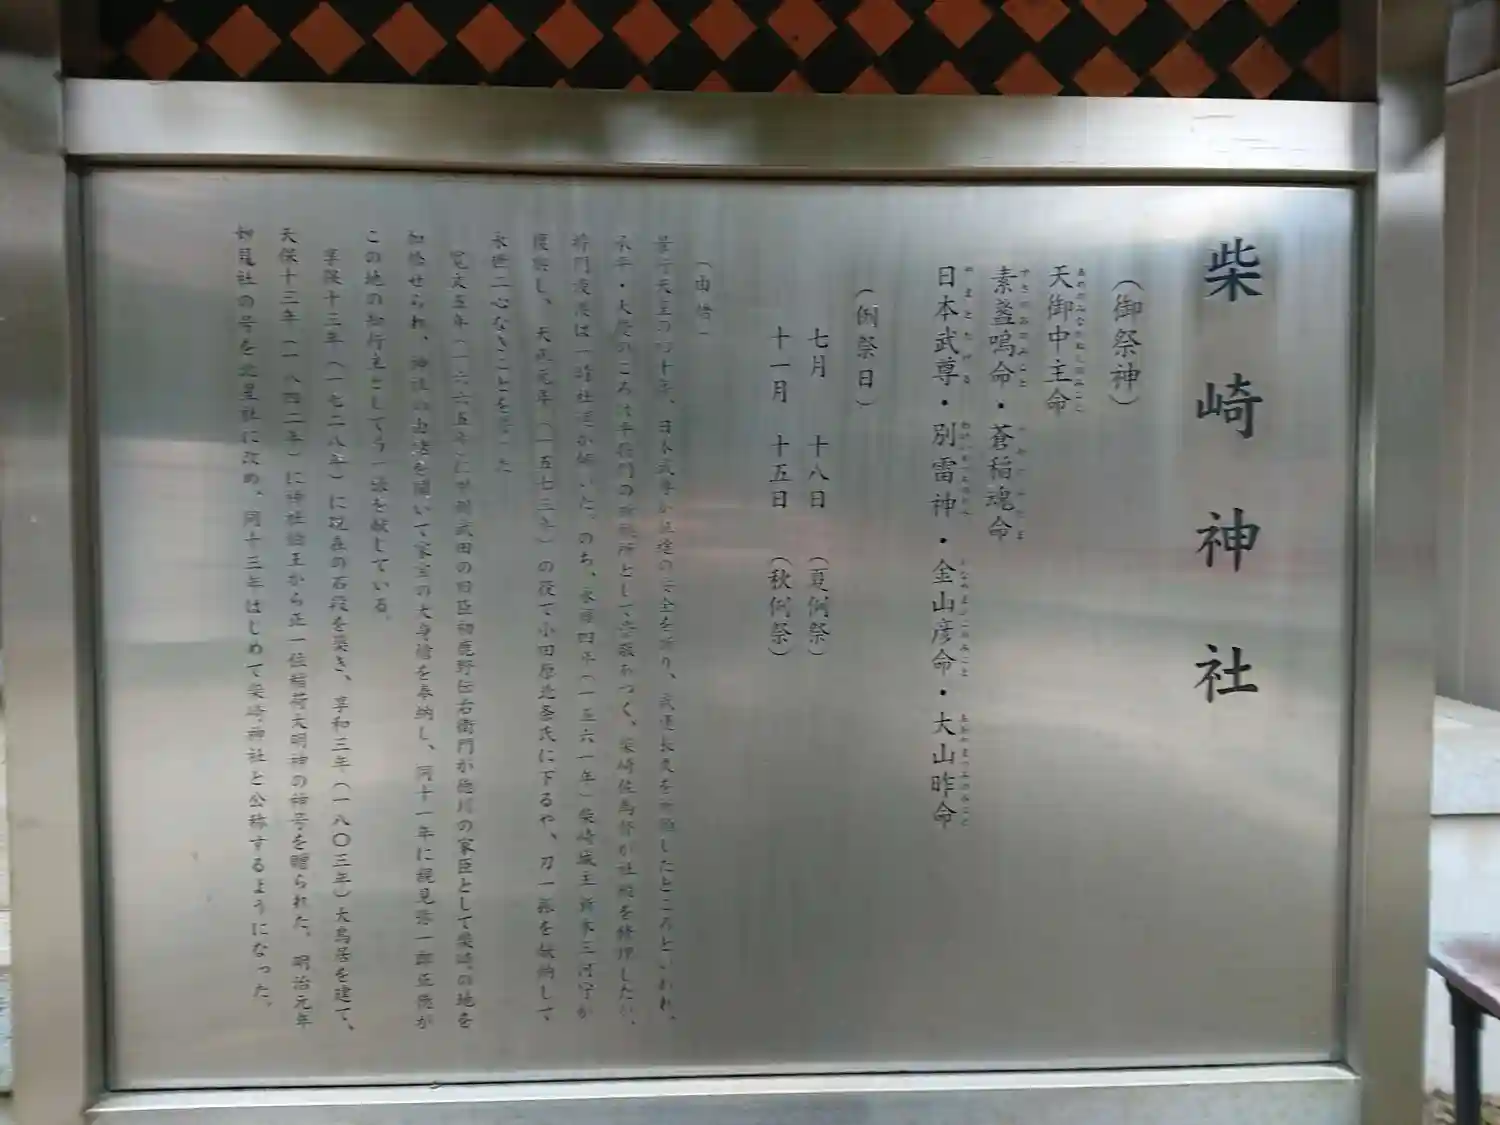 柴崎神社
（御祭神）
天御中主命
素盞嗚命・蒼稲魂命
日本武尊・別雷神・金山彦命・大山昨命
（例祭日）
七月 十八日 （夏例祭）
十一月 十五日 （秋例祭）
（由緒）
景行天皇の四十年、日本武尊が征途の安全を祈り、武運長久を祈願したところといわれ、
承平・天慶のころは平将門の祈願所として崇敬あつく、柴崎左馬督が社殿を修理したが、
将門没落は一時社運が傾いた。のち、永禄四年（一五六一年）柴崎城主荒木三河守が
復興し、天正元年（一五七三年）の役で小田原北条氏に下るや、刀一振を献納して
永世二心なきことを誓った
寛文五年（一六六五年）に甲州武田の旧臣初鹿野伝右衛門が徳川の家臣として柴崎の地を
知行せられ、神社の由緒を聞いて家宝の大身槍を奉納し、同十一年に視見弥一郎正徳が
この地の知行主としてう一振を献じている。
享保十三年（一七二八年）に現在の石段を築き、享和三年（一八〇三年）大鳥居を建て、
天保十三年（一八四二年）に神社伯王から正一位稲荷大明神の神号を贈られた。明治元年
妙見社の号を北星社に改め、同十三年はじめて柴崎神社と公称するようになった。